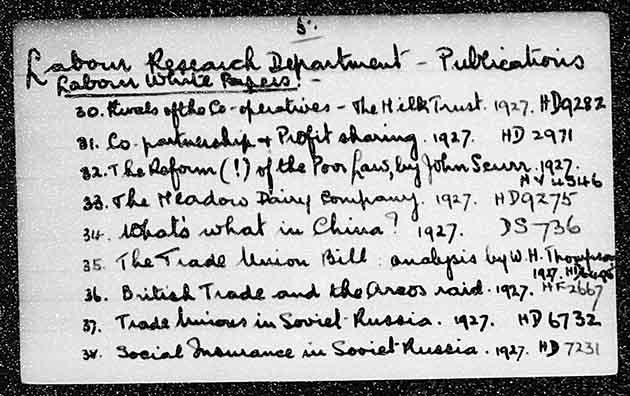 5.
Labour Research Department - Publications
Labour White Papers. -
30. Rivals of the Co-operatives - The Milk Trust. 1927. HD9282
31. Co-partnership & Profit sharing. 1927. HD 2971
32. The Reform (!) of the Poor Law, by John Scurr. 1927.
HV 4546
33. The Meadow Dairy Company. 1927. HD9275
34. What's what in China? 1927. DS 736
35. The Trade Union Bill: analysis by W.H. Thompson
1927.
36. British Trade and the Arcos raid. 1927. HF 2667
37. Trade Unions in Soviet Russia. 1927. HD 6732
38. Social Insurance in Soviet Russia. 1927. HD 7231